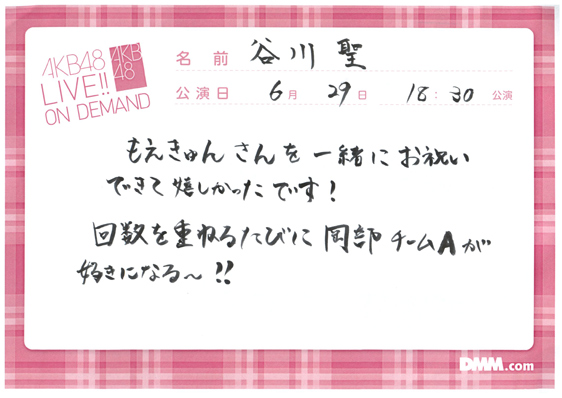 AKB48
LIVE!!
ON DEMAND
AKB
48
名前 谷川 聖
公演日 6月 29日 18:30 公演
もえきゅんさんを一緒にお祝い
できて嬉しかったです！
回数を重ねるたびに岡部チームAが
好きになる〜!!
DMM.com